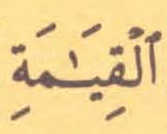 ٱلْقِيَٰمَةِ